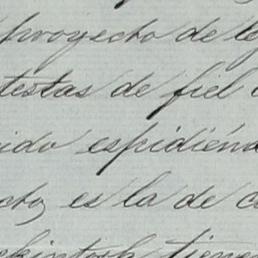 proyecto de le
testas de fiel
ido espidiénd
cto, es la de c
ckintosh tiene